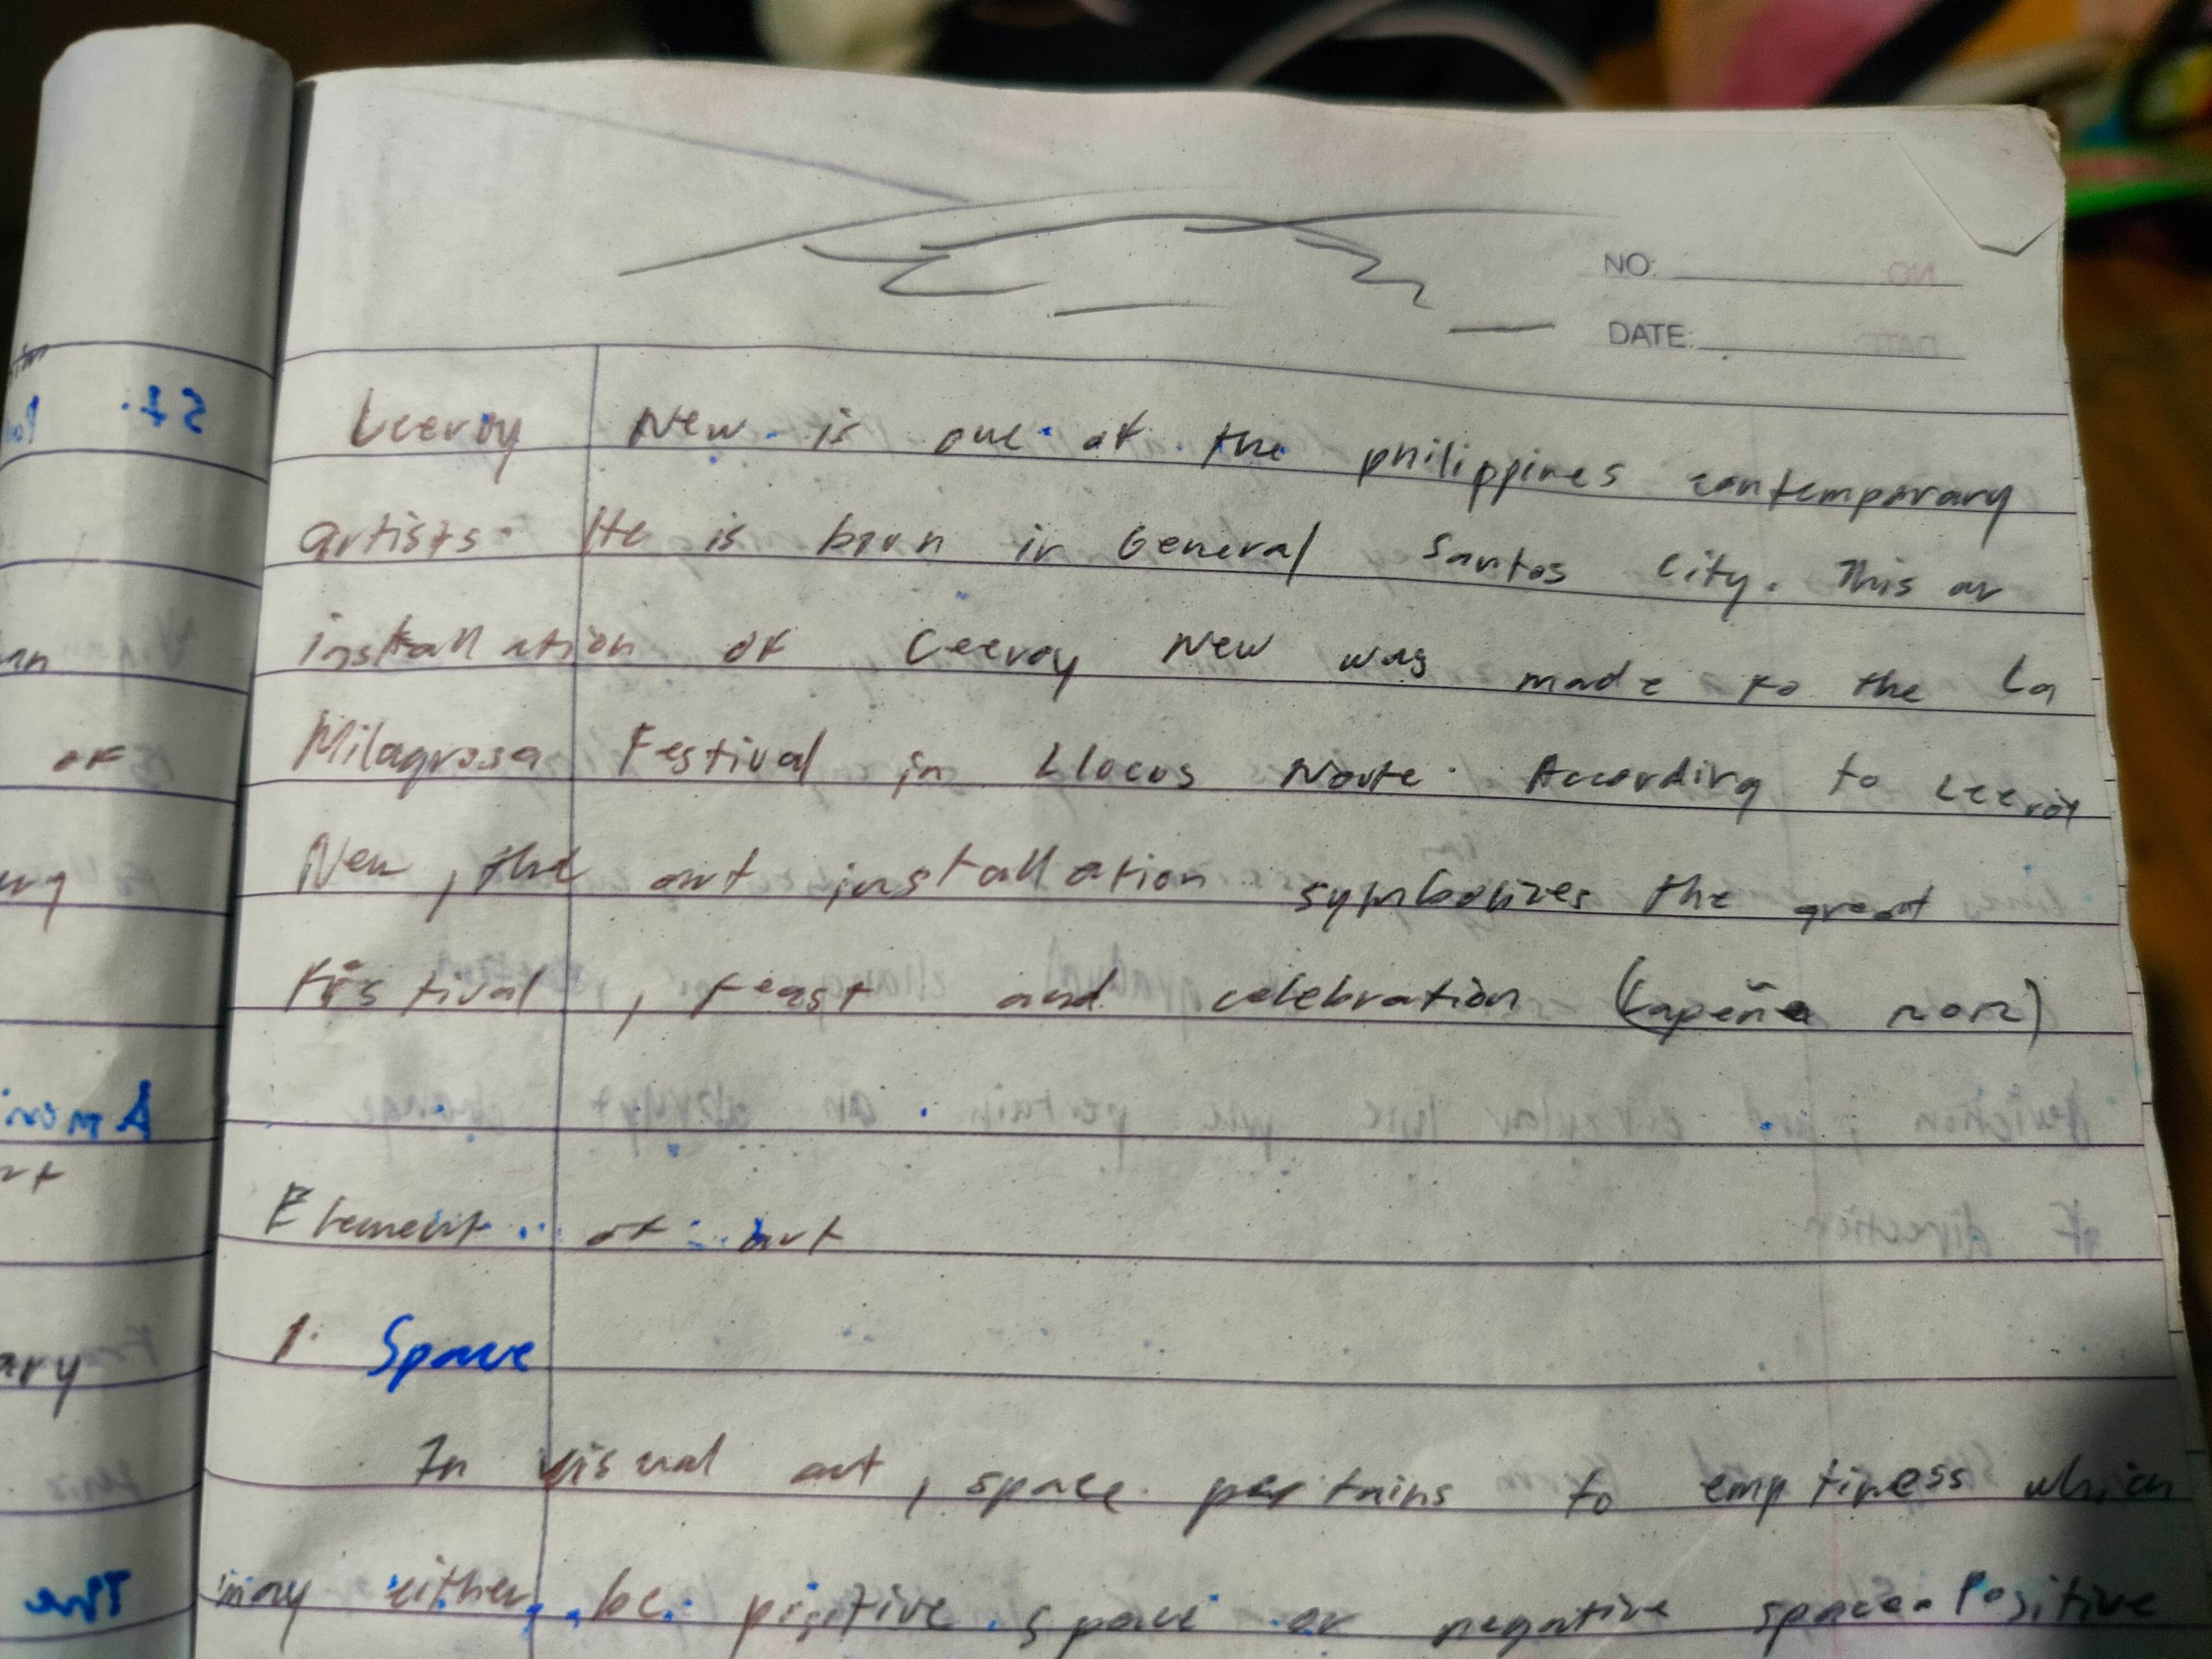 NO:
DATE:
Leeroy New is one of the philippines contemporary
artists. He is born in General Santos City. This ar
installation of Leeroy New was made to the La
Milagrosa Festival in Llocos Norte. According to Leeroy
New, the art installation symbolizes the great
festival, feast and celebration (Lapeña
Element of art
1. Space
In visual art, space pertains to emptiness which
may either be positive space or negative space. Positive